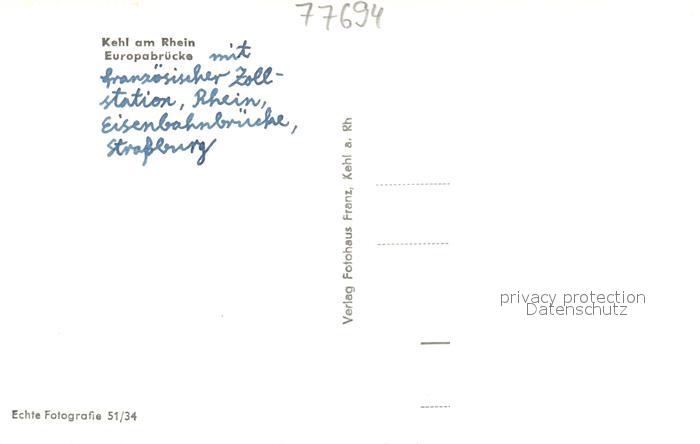 77694
Kehl am Rhein
Europabrücke mit
französischer Zoll-
station, Rhein,
Eisenbahnbrücke,
Straßburg
Verlag Fotohaus Franz, Kehl a. Rh
privacy protection
Datenschutz
Echte Fotografie 51/34